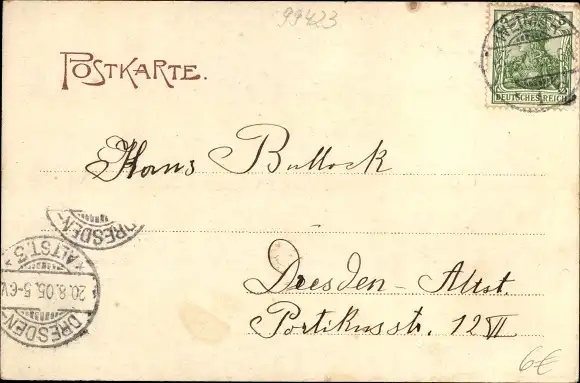 99423
POSTKARTE.
WEIMAR
DEUTSCHES REICH
Hans Bullock
DRESDEN-
Dresden - Altst.
Portikusstr. 12 II
DRESDEN-
ALTST. 3
20.8.05. 5-6V.
6€